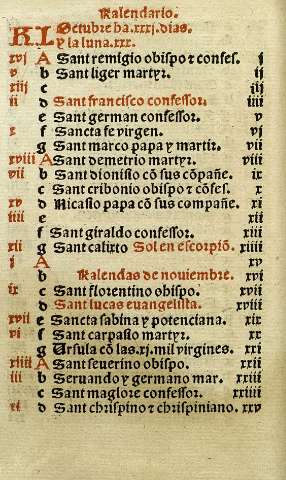 Kalendario.
KL Octubre ha .xxxj. dias.
y la luna .xxx.
xvj A Sant remigio obispo ⁊ confes. j
b Sant liger martyr. ij
xiij c iij
ij d Sant francisco confessor. iiij
e Sant german confessor. v
x f Sancta fe virgen. vj
g Sant marco papa y martir. vij
xviij A Sant demetrio martyr. viij
vij b Sant dionisio cõ sus cõpañe. ix
c Sant cribonio obispo ⁊ cõfes. x
xv d Nicasio papa cõ sus compañe. xj
iiij e xij
f Sant giraldo confessor. xiij
xij g Sant calixto Sol en escorpiõ. xiiij
j A xv
b Kalendas de nouiembre. xvj
ix c Sant florentino obispo. xvij
d Sant lucas euangelista. xviij
xvij e Sancta sabina y potenciana. xix
vj f Sant carpasio martyr. xx
g Ursula cõ las .xj. mil virgines. xxj
xiiij A Sant seuerino obispo. xxij
iij b Seruando y germano mar. xxiij
c Sant maglore confessor. xxiiij
xj d Sant chrispino ⁊ chrispiniano. xxv